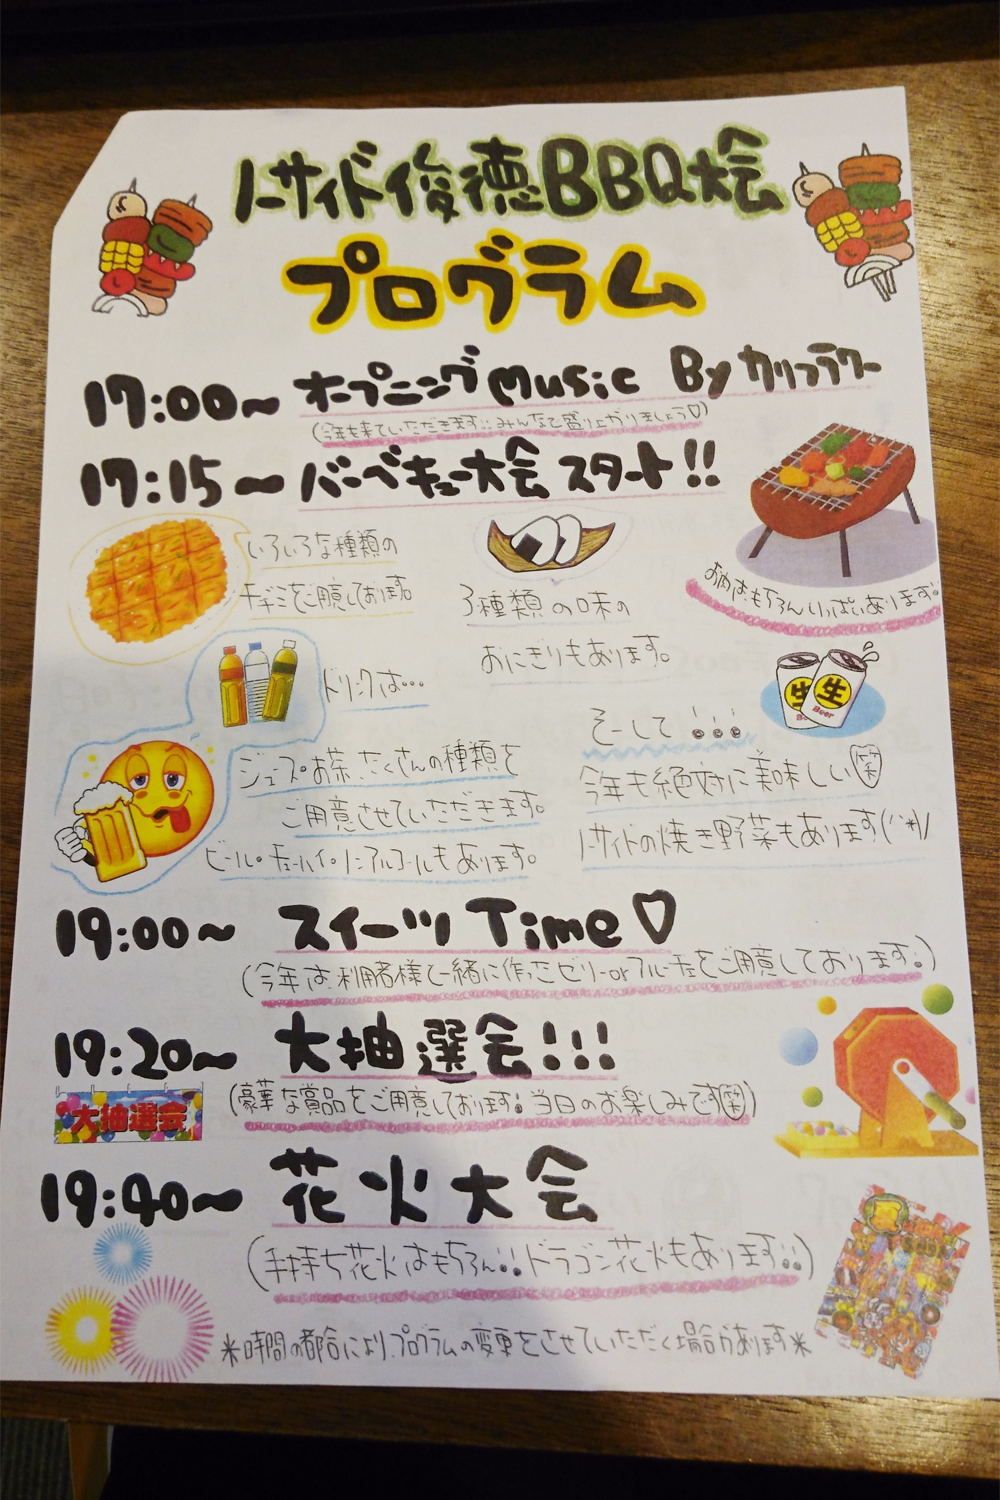 ノーサイド俊徳BBQ大会
プログラム
17:00~ オープニングMusic By カリフラワー
(今年も来ていただきます!!みんなで盛り上がりましょう♡)
17:15~ バーベキュー大会スタート!!
いろいろな種類の
チヂミをご用意しております。
3種類の味の
おにぎりもあります。
お肉はもちろんいっぱいあります!!
ドリンクは…
ジュース。お茶。たくさんの種類を
ご用意させていただきます。
ビール。チューハイ。ノンアルコールもあります。
生
Beer
生
Beer
そーして!!!
今年も絶対に美味しい(笑)
ノーサイドの焼き野菜もあります(^*)/
19:00~ スイーツTime♡
(今年は、利用者様と一緒に作ったゼリーorフルーチェをご用意しております!)
19:20~ 大抽選会!!!
(豪華な賞品をご用意しております!当日のお楽しみです(笑))
大抽選会
19:40~ 花火大会
(手持ち花火はもちろん!!ドラゴン花火もあります!!)
*時間の都合により、プログラムの変更をさせていただく場合があります*